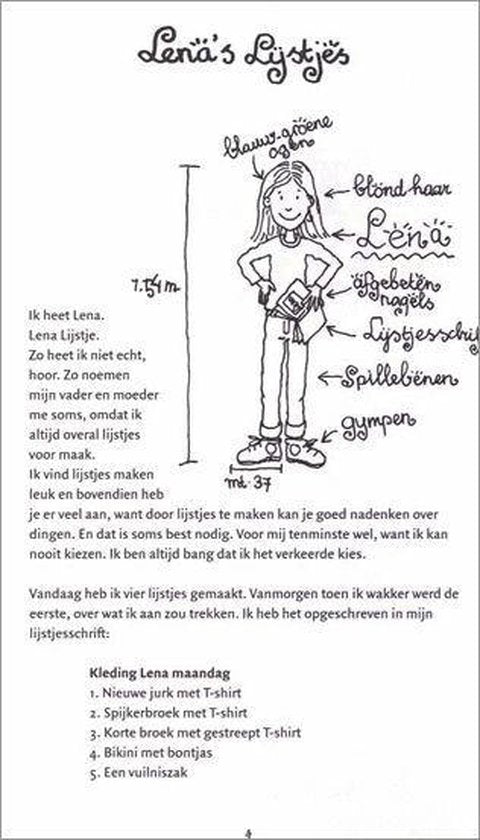 Lena's Lijstjes
blauw-groene
ogen
blond haar
Lena
1.54 m
afgebeten
nagels
Spillebenen
gympen
mt. 37
Ik heet Lena.
Lena Lijstje.
Zo heet ik niet echt,
hoor. Zo noemen
mijn vader en moeder
me soms, omdat ik
altijd overal lijstjes
voor maak.
Ik vind lijstjes maken
leuk en bovendien heb
je er veel aan, want door lijstjes te maken kan je goed nadenken over
dingen. En dat is soms best nodig. Voor mij tenminste wel, want ik kan
nooit kiezen. Ik ben altijd bang dat ik het verkeerde kies.
Vandaag heb ik vier lijstjes gemaakt. Vanmorgen toen ik wakker werd de
eerste, over wat ik aan zou trekken. Ik heb het opgeschreven in mijn
lijstjesschrift:
Kleding Lena maandag
1. Nieuwe jurk met T-shirt
2. Spijkerbroek met T-shirt
3. Korte broek met gestreept T-shirt
4. Bikini met bontjas
5. Een vuilniszak
4